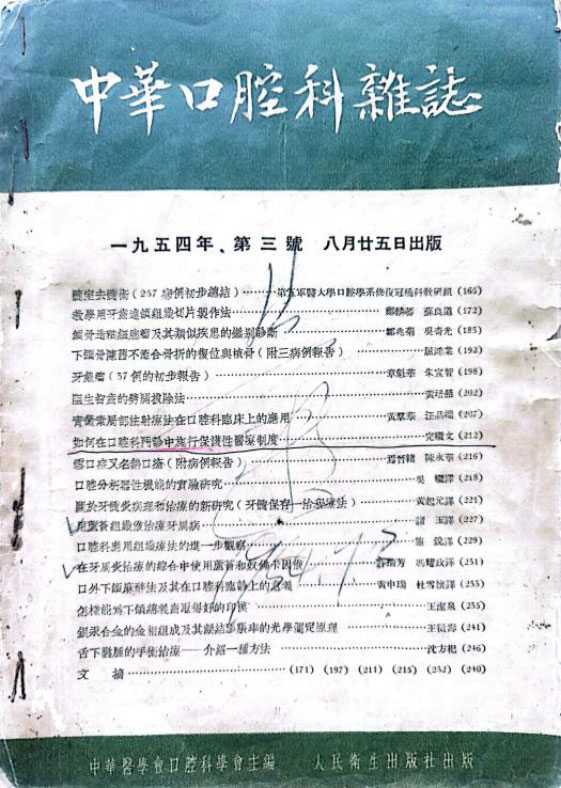 中華口腔科雜誌
一九五四年、第三號 八月廿五日出版
髓室去髓術(257病例初步總結) 第五軍醫大學口腔學系修復冠橋科教研組(165)
教學用牙齒連頜組織切片製作法 鄭麟蕃 (172)
頜骨造秞細胞瘤及其類似疾患的鑑別診斷 鄒兆菊 吳奇光(185)
下頜骨陳舊不癒合骨折的復位與植骨(附三病例報告) (192)
牙齦瘤(57例的初步報告) 章魁華 朱宣智(198)
阻生智齒的劈開拔除法 黃培喆(202)
青黴素局部注射療法在口腔科臨床上的應用 (207)
如何在口腔科門診中施行保護性醫療制度 (212)
雪口症又名鵝口瘡(附病例報告) 陳永 (216)
口腔分析器性機能的實驗研究 吳 譯(218)
關於牙髓炎病理和治療的新研究(牙髓保存—治療療法) 譯(221)
用蘆薈組織漿治療牙周病 譯(227)
口腔科應用組織療法的進一步觀察 譯(229)
在牙周炎治療的綜合中使用蘆薈和奴佛卡因 馮耀政譯(231)
口外下頜麻醉法及其在口腔科臨床上的意義 黃申瑞 杜雪懷譯(233)
怎樣能為下頜總義齒取得好的印模 王潔泉(235)
銀汞合金的金相組成及其凝結膨脹率的光學測定原理 王 (241)
舌下囊腫的手術治療——介紹一種方法 沈方杞(246)
文 摘 (171) (197) (211) (215) (232) (240)
中華醫學會口腔科學會主編 人民衛生出版社出版